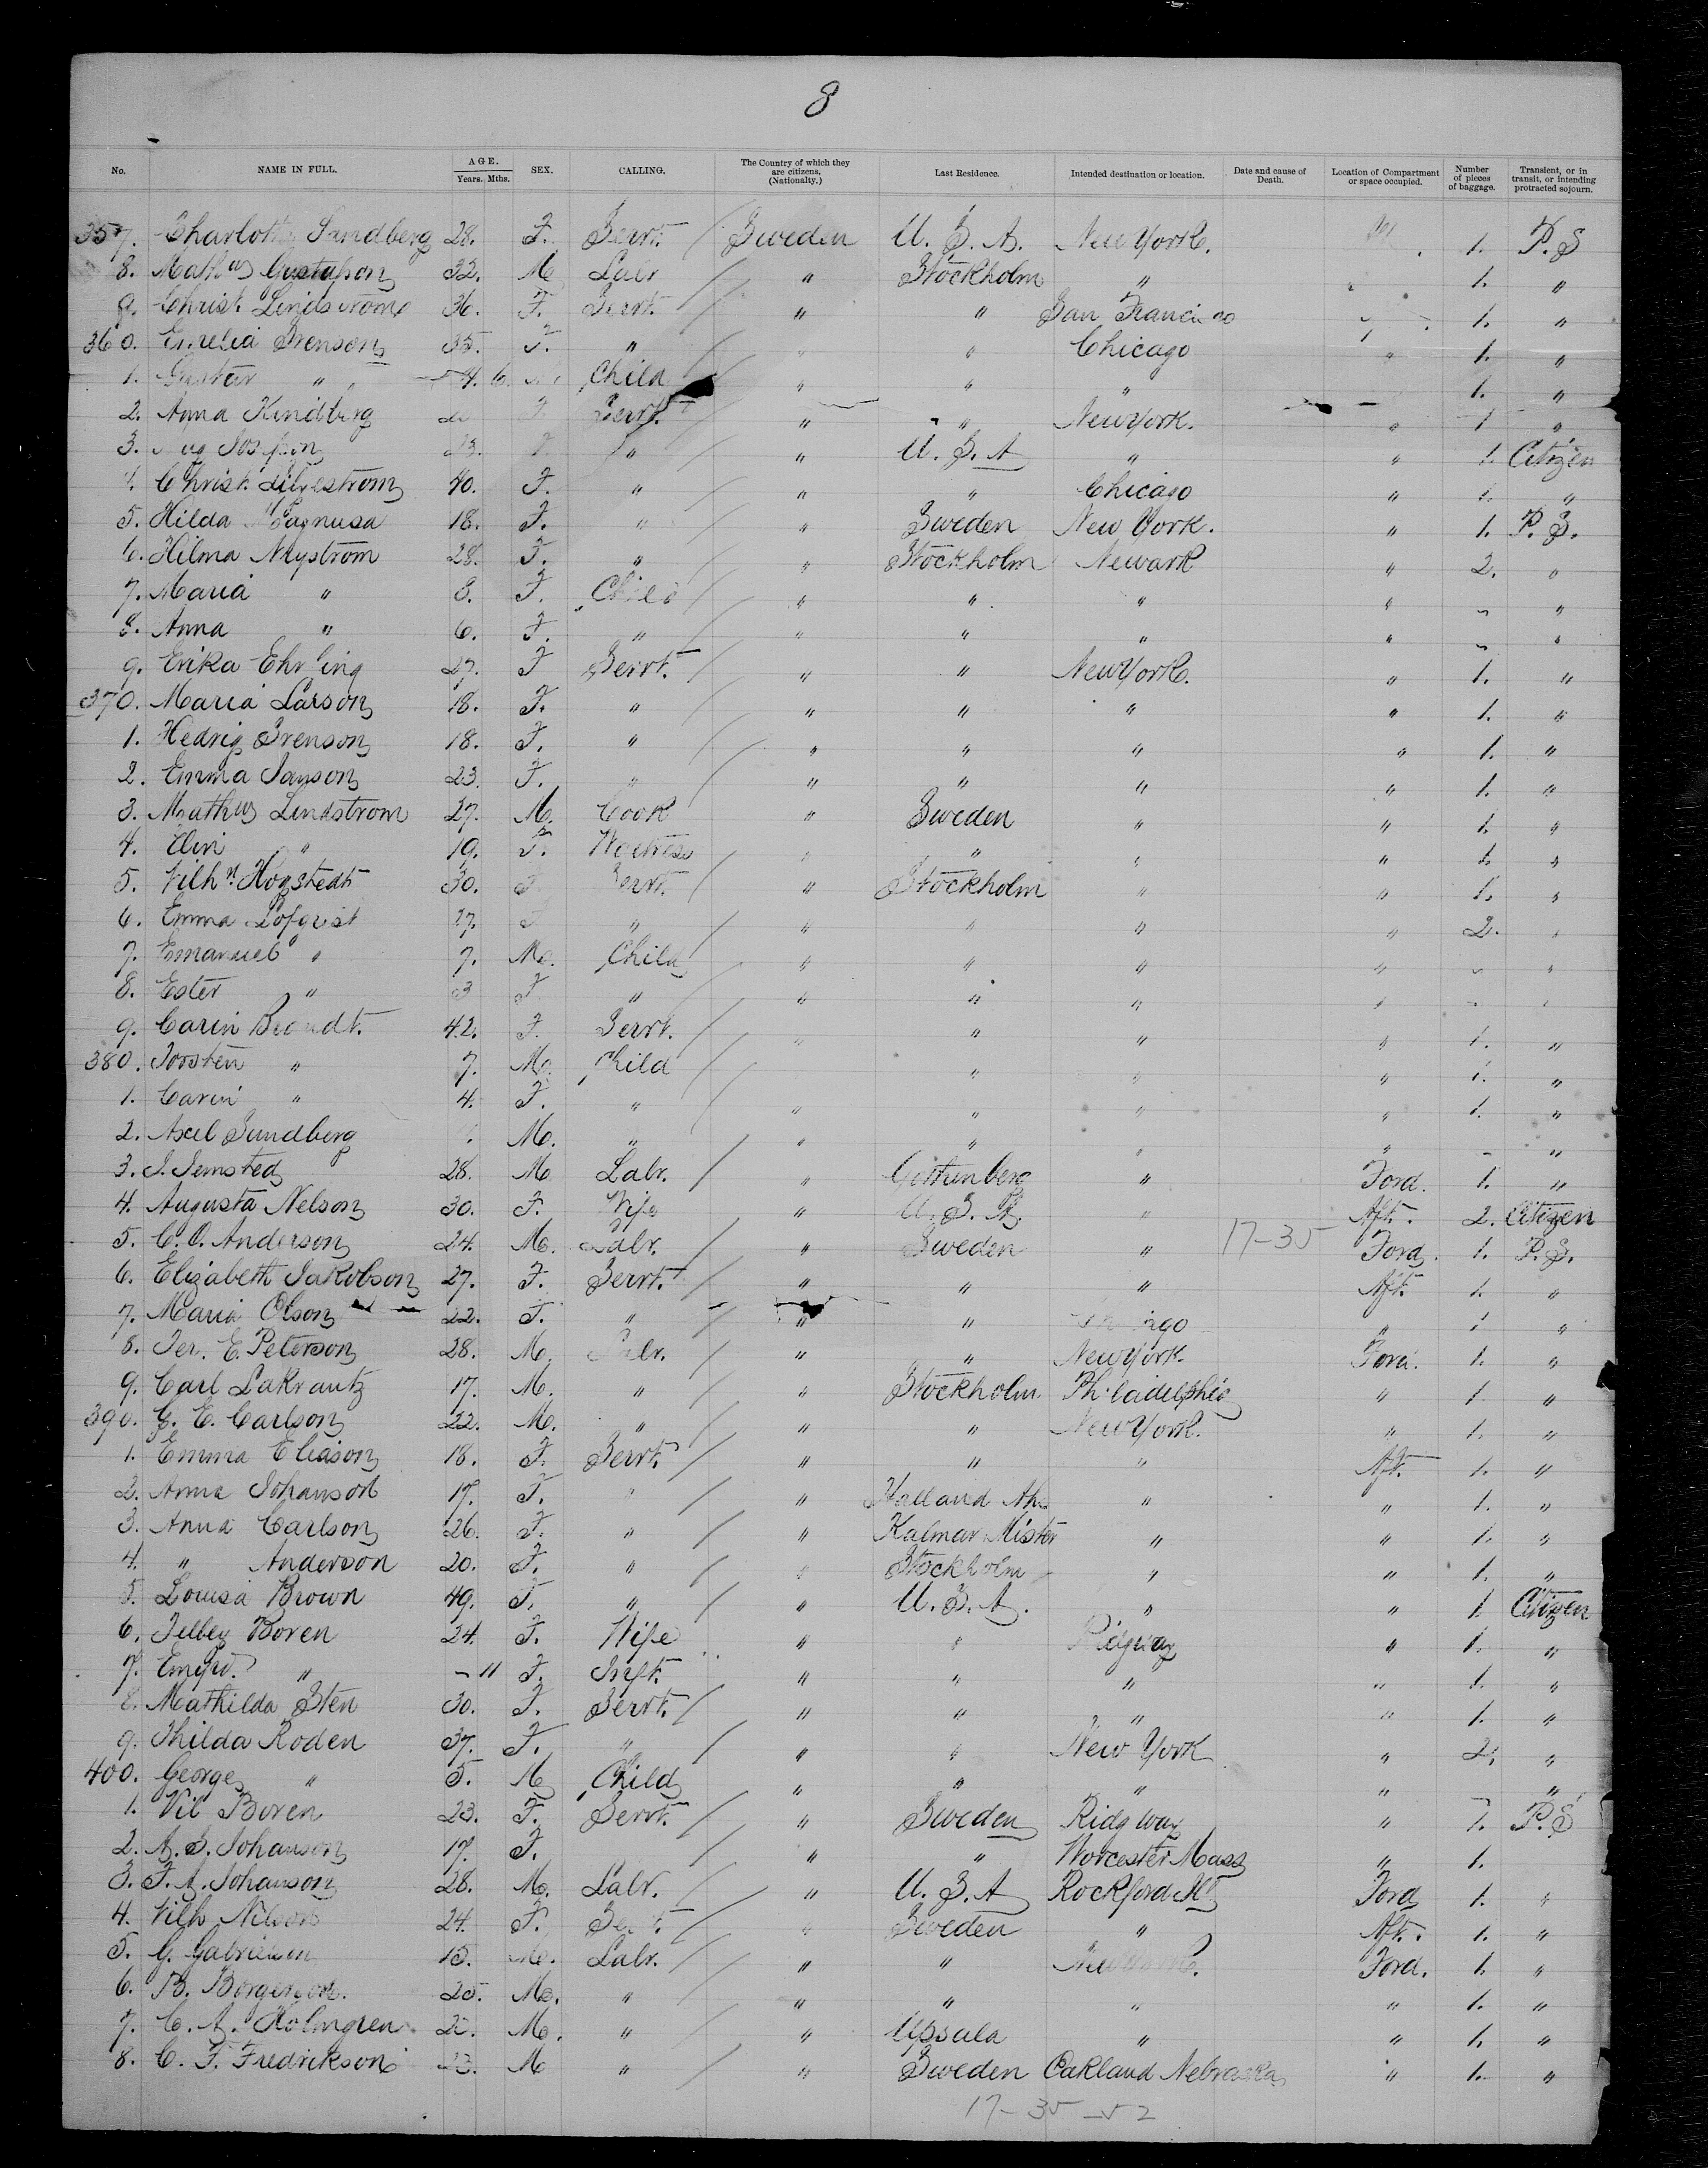 8
No. NAME IN FULL. AGE. Years. Mths. SEX. CALLING. The Country of which they are citizens. (Nationalty.) Last Residence. Intended destination or location. Date and cause of Death. Location of Compartment or space occupied. Number of pieces of baggage. Transient, or in transit, or intending protracted sojourn.
357. Charlotte Sandberg 28. F. Servt. Sweden U. S. A. New York. 1. P. S
8. Gustafson 32. M Labr " Stockholm " 1. "
9. Christ. Lindstrom 36. F. Servt. " " San Francisco 1. "
360. Svenson 35. F. " " " Chicago " 1. "
1. Gustav " 4. 6. Child " " " 1. "
2. Anna Kindberg F Servt " " New York. " 1 "
3. 23. F. " " U. S. A " " 1. Citizen
4. Christ. 40. F. " " " Chicago " 1. "
5. Hilda Magnusa 18. F. " " Sweden New York. " 1. P. S.
6. Hilma Nystrom 28. F. " " Stockholm Newark " 2. "
7. Maria " 8. F. Child " " " " "
8. Anna " 6. F. " " " " " "
9. Erika Ehrling 27. F Servt. " " New York. " 1. "
370. Maria Larson 18. F. " " " " " 1. "
1. Hedvig Svenson 18. F. " " " " " 1. "
2. Emma Janson 23. F. " " " " " 1. "
3. Lindstrom 27. M. Cook " Sweden " " 1. "
4. Elin " 19. F. Waitress " " " " 1. "
5. Vilh. Hogstedt 30. F Servt. " Stockholm " " 1. "
6. Emma Lofqvist 27. F " " " " " 2. "
7. Emanuel " 7. M. Child " " " " "
8. Ester " 3 F " " " " " - "
9. Carin Brandt. 42. F. Servt. " " " " 1. "
380. Torsten " 7. M. Child " " " 1. "
1. Carin " 4. F. " " " " " 1. "
2. Axel Sundberg M. " " " " " - "
3. J. Jemsted 28. M Labr. " Gothenberg " Ford. 1. "
4. Augusta Nelson 30. F. Wife " U. S. A. " Aft. 2. Citizen
5. C. O. Anderson 24. M. Labr. " Sweden " 17-35 Ford. 1. P. S.
6. Elizabeth Jakobson 27. F. Servt. " " " Aft. 1. "
7. Maria Olson 22. F. " " " Chicago " 1 "
8. E. Peterson 28. M. Labr. " " New York. Ford. 1. "
9. Carl Lakrantz 17. M. " " Stockholm. Philadelphia " 1. "
390. G. E. Carlson 22. M. " " " New York. " 1. "
1. Emma Eliason 18. F. Servt. " " " Aft. 1. "
2. Anna Johanson 17. F. " " Halland " " 1. "
3. Anna Carlson 26. F. " " Kalmar " " 1. "
4. " Anderson 20. F. " " Stockholm " " 1. "
5. Louisa Brown 49. F. " " U. S. A. " " 1. Citizen
6. Boren 24. F. Wife " " Ridgway " 1. "
7. " - 11 F. Inft. " " " " 1. "
8. Mathilda Sten 30. F. Servt. " " " " 1. "
9. Thilda Roden 37. F. " " " New York " 2. "
400. George " 5. M Child " " " " "
1. Vil Boren 23. F. Servt. " Sweden Ridgway " 1. P. S
2. A. S. Johanson 17. F. " " Worcester Mass " 1.
3. F. A. Johanson 28. M. Labr. " U. S. A Rockford Ill Ford 1. "
4. Vilh Nilson 24. F. Servt. " Sweden " Aft. 1. "
5. G. 15. M. Labr. " " New York. Ford. 1. "
6. B. Borgerson. 25. M. " " " " " 1. "
7. C. A. Holmgren M. " " Upsala " " 1. "
8. C. F. Fredrikson 23. M " " Sweden Oakland Nebraska " 1. "
17-35-52